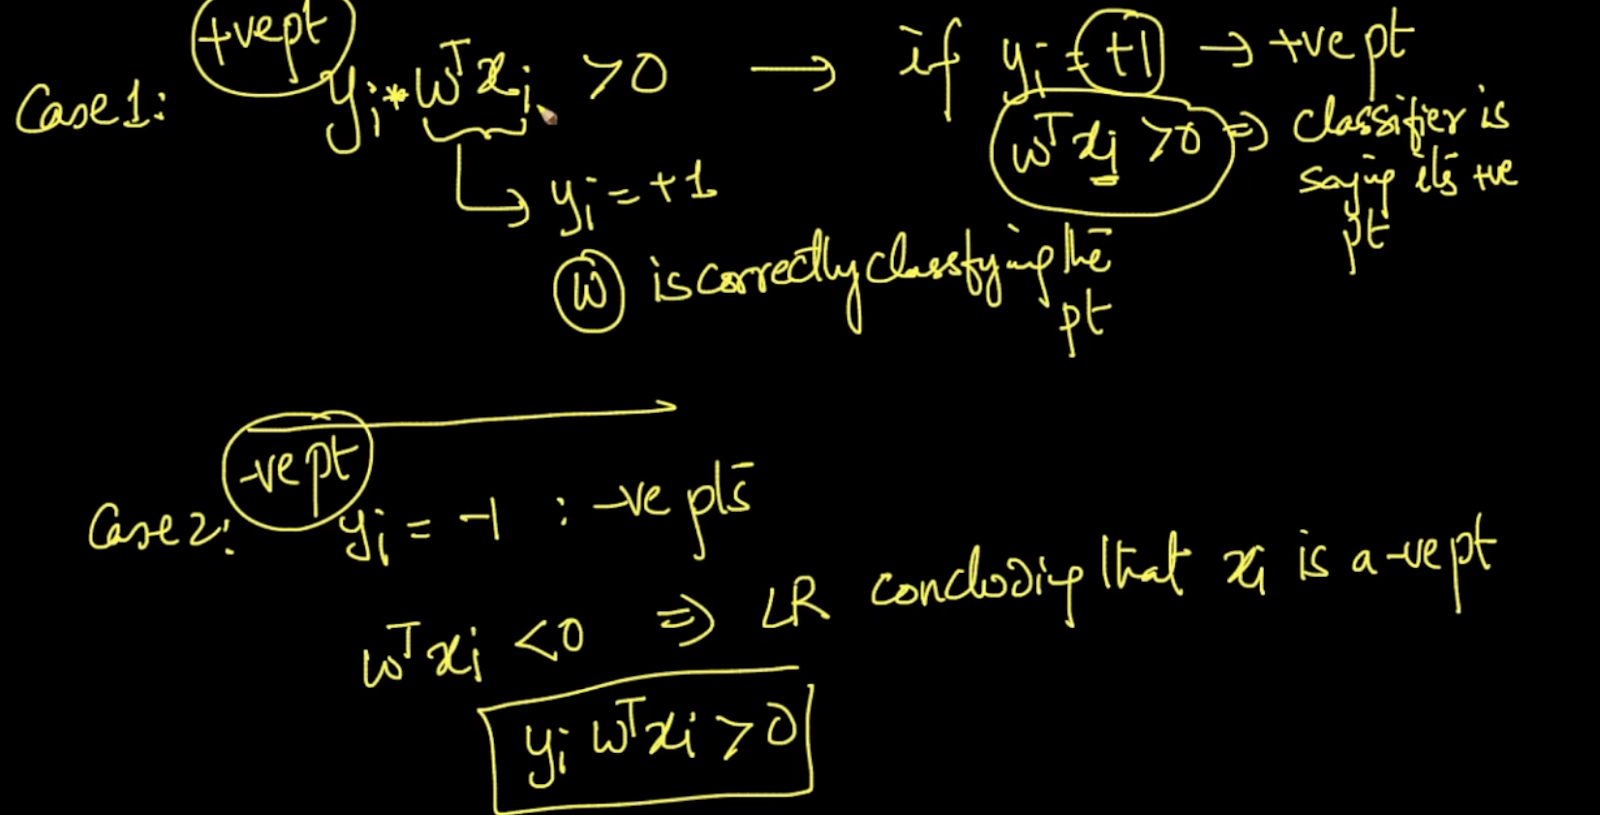 +ve pt
Case 1: yi * wᵀxi >0 → if yi = +1 → +ve pt
wᵀxi >0 ⇒ classifier is
saying it's +ve
pt
↳ yi = +1
w is correctly classfying the
pt
-ve pt
Case 2: yi = -1 : -ve pts
wᵀxi <0 ⇒ LR concluding that xi is a -ve pt
yi wᵀxi >0